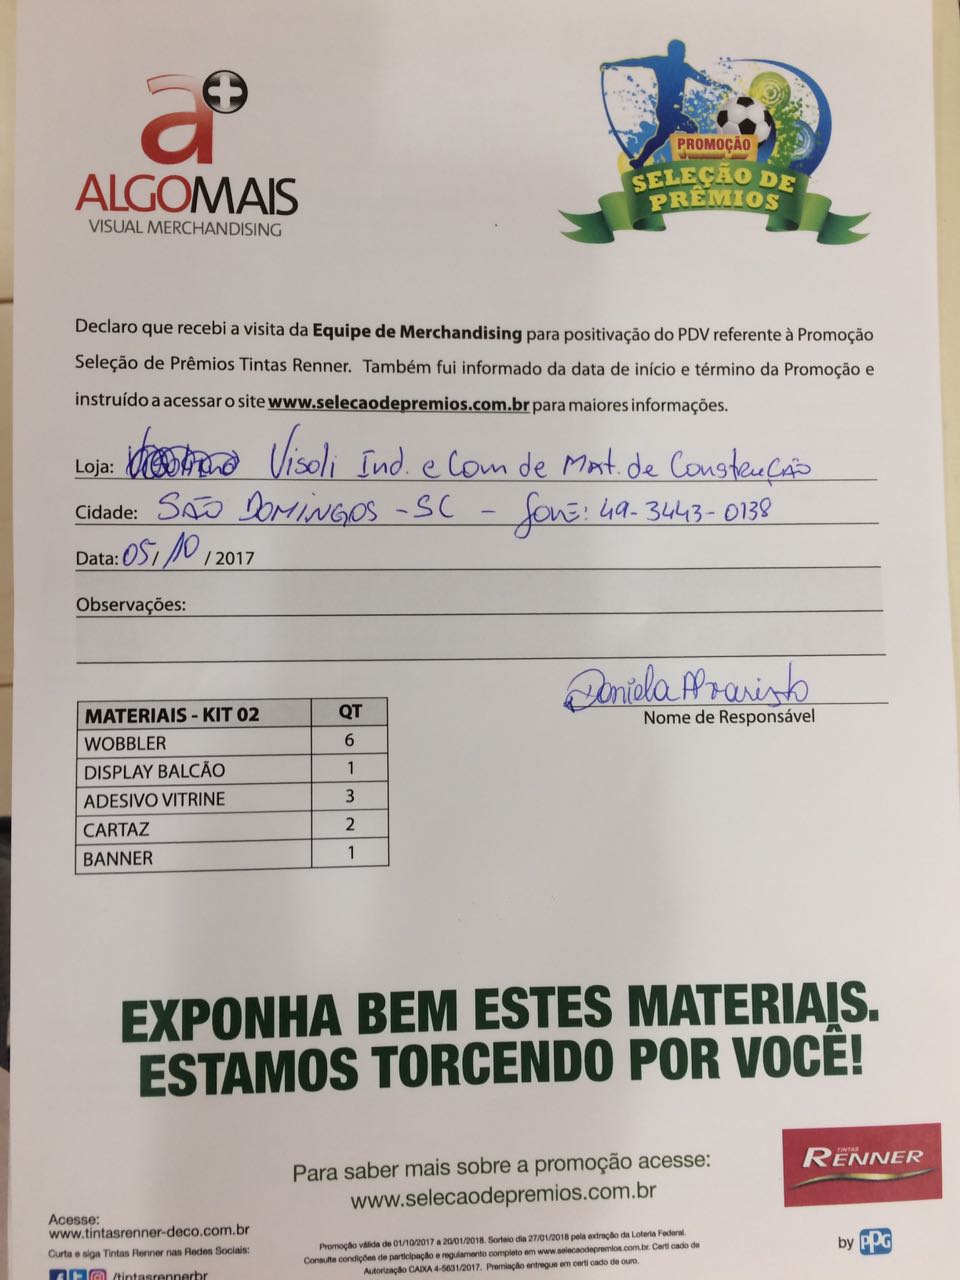 a+
ALGOMAIS
VISUAL MERCHANDISING
PROMOÇÃO
SELEÇÃO DE
PRÊMIOS
Declaro que recebi a visita da Equipe de Merchandising para positivação do PDV referente à Promoção
Seleção de Prêmios Tintas Renner. Também fui informado da data de início e término da Promoção e
instruído a acessar o site www.selecaodepremios.com.br para maiores informações.
Loja: Visoli Ind. e Com de Mat. de Construção
Cidade: SÃO DOMINGOS - SC - fone: 49-3443-0138
Data: 05/10/2017
Observações:
Daniela
Nome de Responsável
MATERIAIS - KIT 02 QT
WOBBLER 6
DISPLAY BALCÃO 1
ADESIVO VITRINE 3
CARTAZ 2
BANNER 1
EXPONHA BEM ESTES MATERIAIS.
ESTAMOS TORCENDO POR VOCÊ!
Para saber mais sobre a promoção acesse:
www.selecaodepremios.com.br
TINTAS
RENNER
by PPG
Acesse:
www.tintasrenner-deco.com.br
Curta e siga Tintas Renner nas Redes Sociais:
/tintasrennerbr
Promoção válida de 01/10/2017 a 20/01/2018. Sorteio dia 27/01/2018 pela extração da Loteria Federal.
Consulte condições de participação e regulamento completo em www.selecaodepremios.com.br. Certi cado de
Autorização CAIXA 4-5631/2017. Premiação entregue em certi cado de ouro.